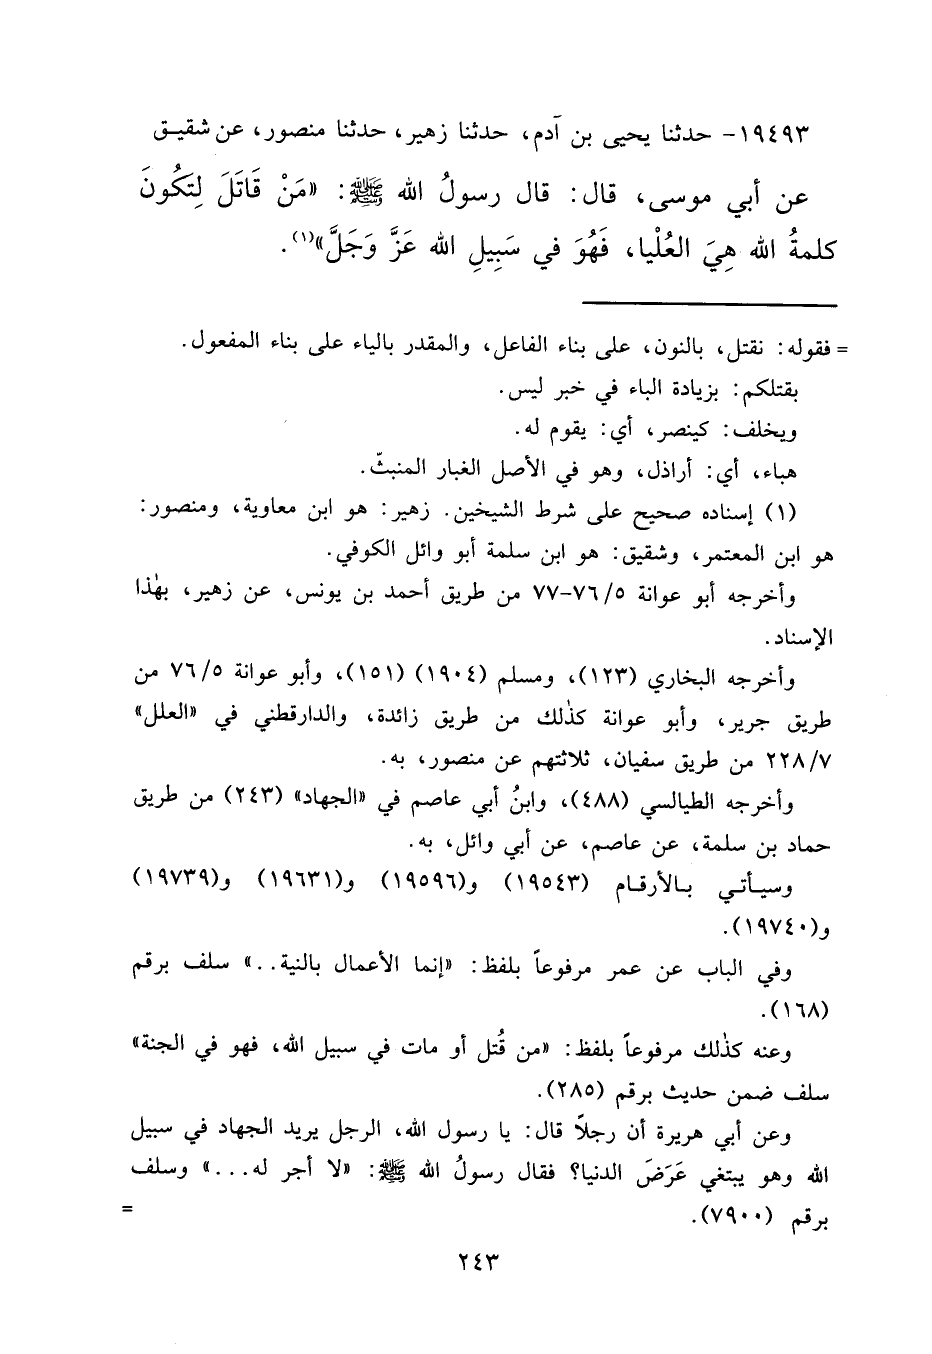 ١٩٤٩٣- حدثنا يحيى بن آدم، حدثنا زهير، حدثنا منصور، عن شقيق
عن أبي موسى، قال: قال رسولُ الله ﷺ: «مَنْ قَاتَلَ لِتَكُونَ
كلمةُ الله هِيَ العُلْيا، فَهُوَ في سَبِيلِ الله عَزَّ وَجَلَّ»(١).
= فقوله: نقتل، بالنون، على بناء الفاعل، والمقدر بالياء على بناء المفعول.
بقتلكم: بزيادة الباء في خبر ليس.
ويخلف: كينصر، أي: يقوم له.
هباء، أي: أراذل، وهو في الأصل الغبار المنبثّ.
(١) إسناده صحيح على شرط الشيخين. زهير: هو ابن معاوية، ومنصور:
هو ابن المعتمر، وشقيق: هو ابن سلمة أبو وائل الكوفي.
وأخرجه أبو عوانة ٧٦/٥-٧٧ من طريق أحمد بن يونس، عن زهير، بهٰذا
الإسناد.
وأخرجه البخاري (١٢٣)، ومسلم (١٩٠٤) (١٥١)، وأبو عوانة ٧٦/٥ من
طريق جرير، وأبو عوانة كذٰلك من طريق زائدة، والدارقطني في «العلل»
٢٢٨/٧ من طريق سفيان، ثلاثتهم عن منصور، به.
وأخرجه الطيالسي (٤٨٨)، وابنُ أبي عاصم في «الجهاد» (٢٤٣) من طريق
حماد بن سلمة، عن عاصم، عن أبي وائل، به.
وسيأتي بالأرقام (١٩٥٤٣) و(١٩٥٩٦) و(١٩٦٣١) و(١٩٧٣٩)
و(١٩٧٤٠).
وفي الباب عن عمر مرفوعاً بلفظ: «إنما الأعمال بالنية..» سلف برقم
(١٦٨).
وعنه كذٰلك مرفوعاً بلفظ: «من قُتل أو مات في سبيل الله، فهو في الجنة»
سلف ضمن حديث برقم (٢٨٥).
وعن أبي هريرة أن رجلاً قال: يا رسول الله، الرجل يريد الجهاد في سبيل
الله وهو يبتغي عَرَضَ الدنيا؟ فقال رسولُ الله ﷺ: «لا أجر له...» وسلف
برقم (٧٩٠٠). =
٢٤٣